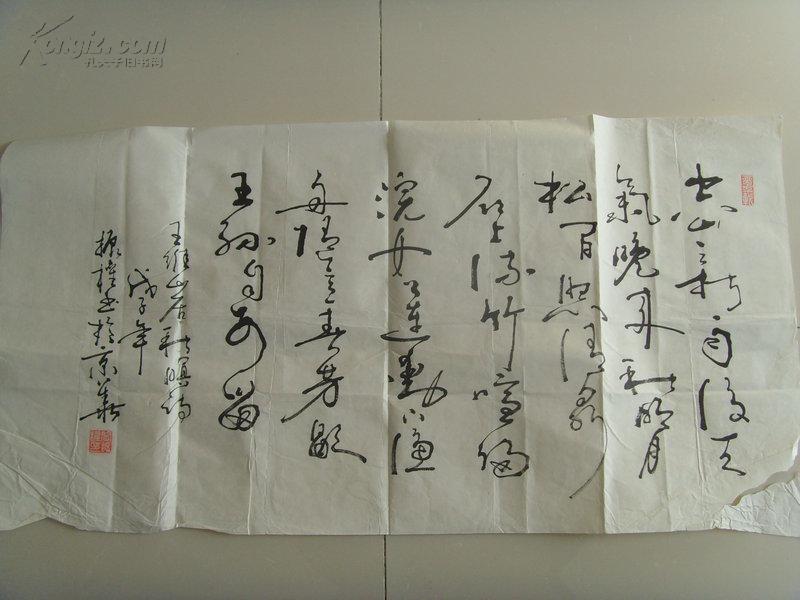 Kongfz.com
孔夫子旧书网
空山新雨後天
氣晚来秋明月
松間照清泉
石上流竹喧歸
浣女蓮動下漁
舟隨意春芳歇
王孫自可留
王維山居秋暝詩
戊子年
振書於京華